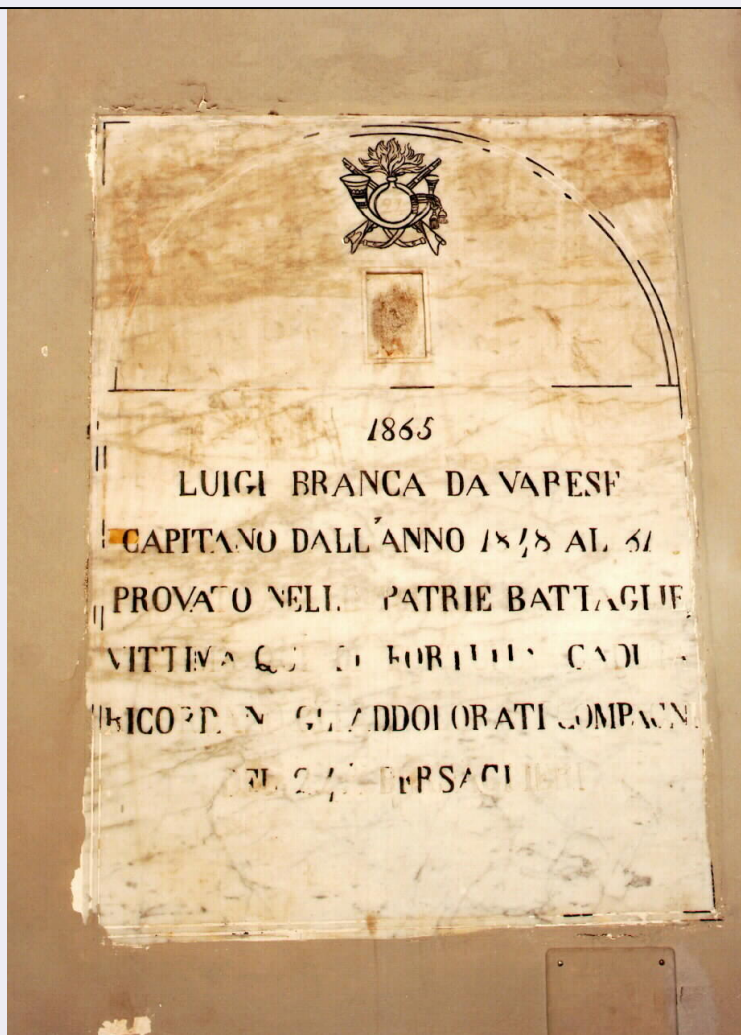 1865
LUIGI BRANCA DA VARESE
CAPITANO DALL'ANNO 1848 AL 61
PROVATO NELLE PATRIE BATTAGLIE
VITTIMA QUI DI FORTUITA CADUTA
RICORDANO GLI ADDOLORATI COMPAGNI
DEL BERSAGLIERI